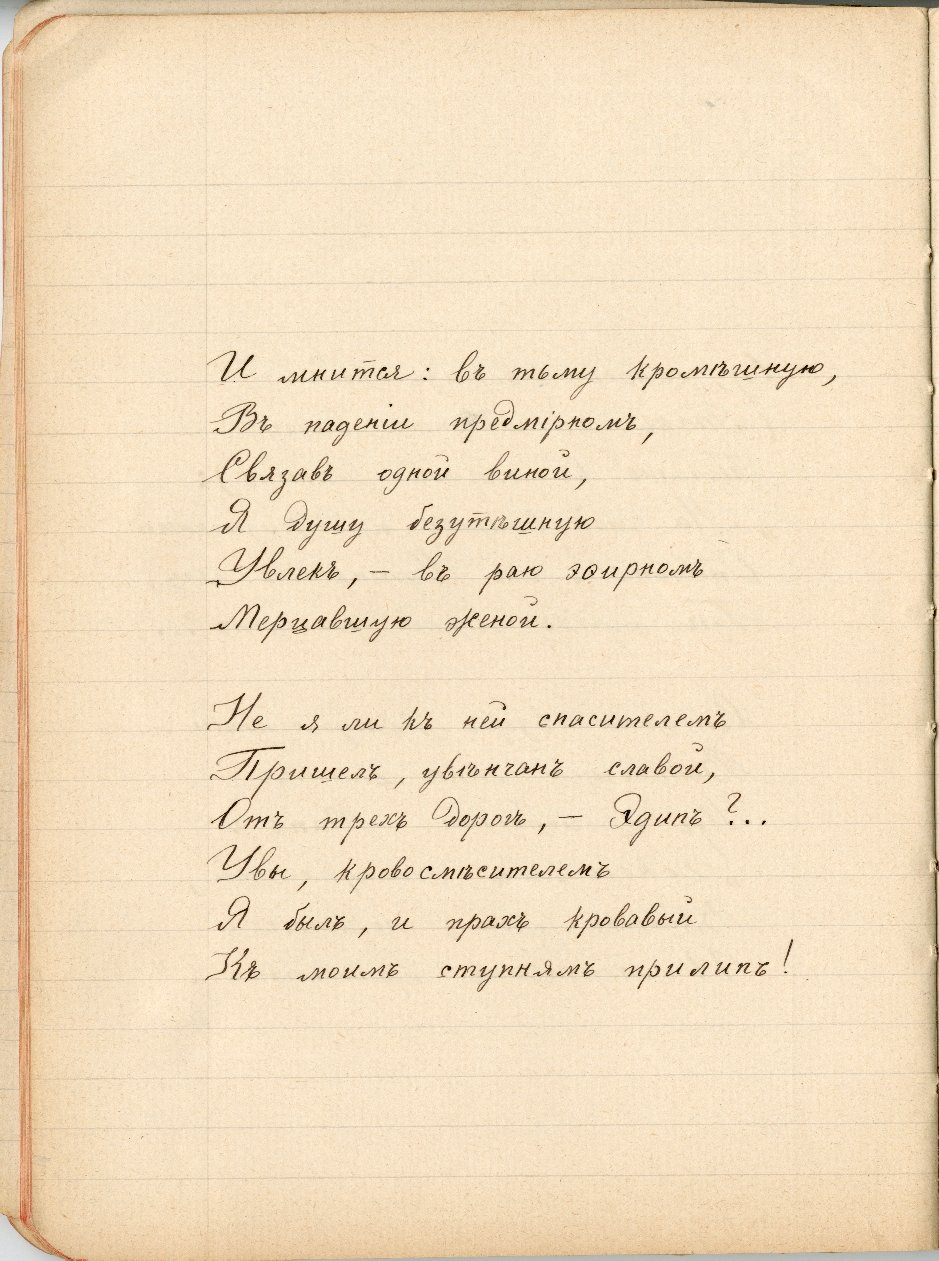 И мнится: въ тьму кромѣшную,
Въ паденіи предмірномъ,
Связавъ одной виной,
Я душу безутѣшную
Увлекъ, – въ раю эѳирномъ
Мерцавшую женой.
Не я ли къ ней спасителемъ
Пришелъ, увѣнчанъ славой,
Отъ трехъ дорогъ, – Эдипъ?...
Увы, кровосмѣсителемъ
Я былъ, и прахъ кровавый
Къ моимъ ступнямъ прилипъ!